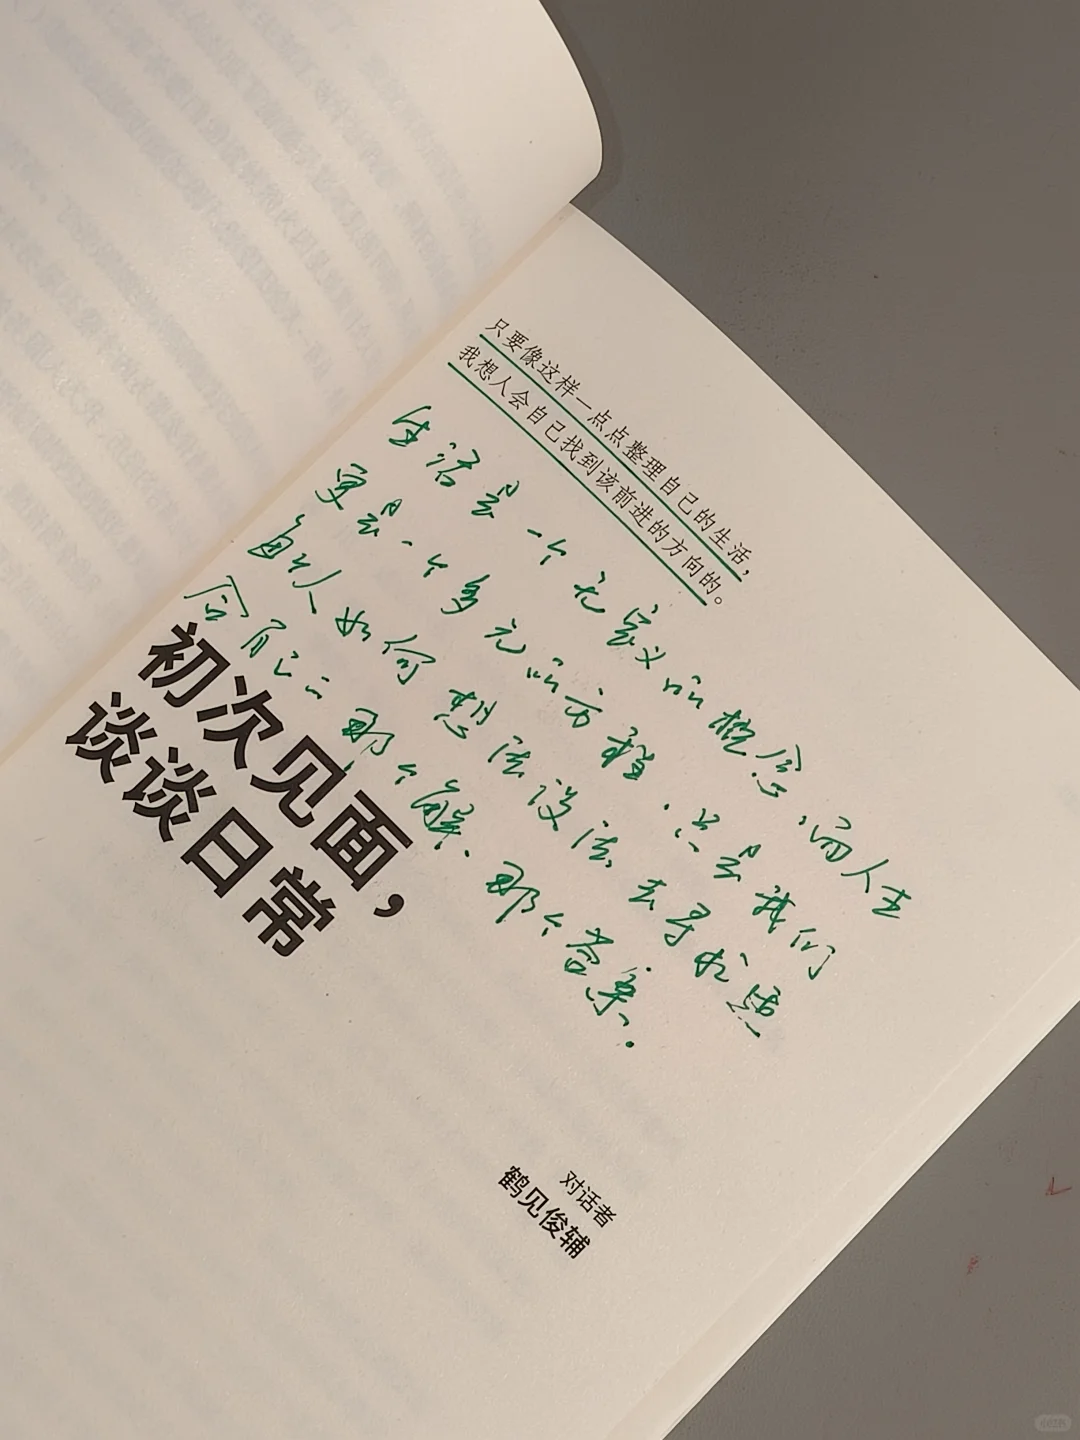 只要像这样一点点整理自己的生活，
我想人会自己找到该前进的方向的。
生活是一个无定义的概念，而人生
更是一个多元的方程，只是我们
每个人如何想法设法去寻找
含有 那个解、那个答案。
初次见面，
谈谈日常
对话者
鹤见俊辅